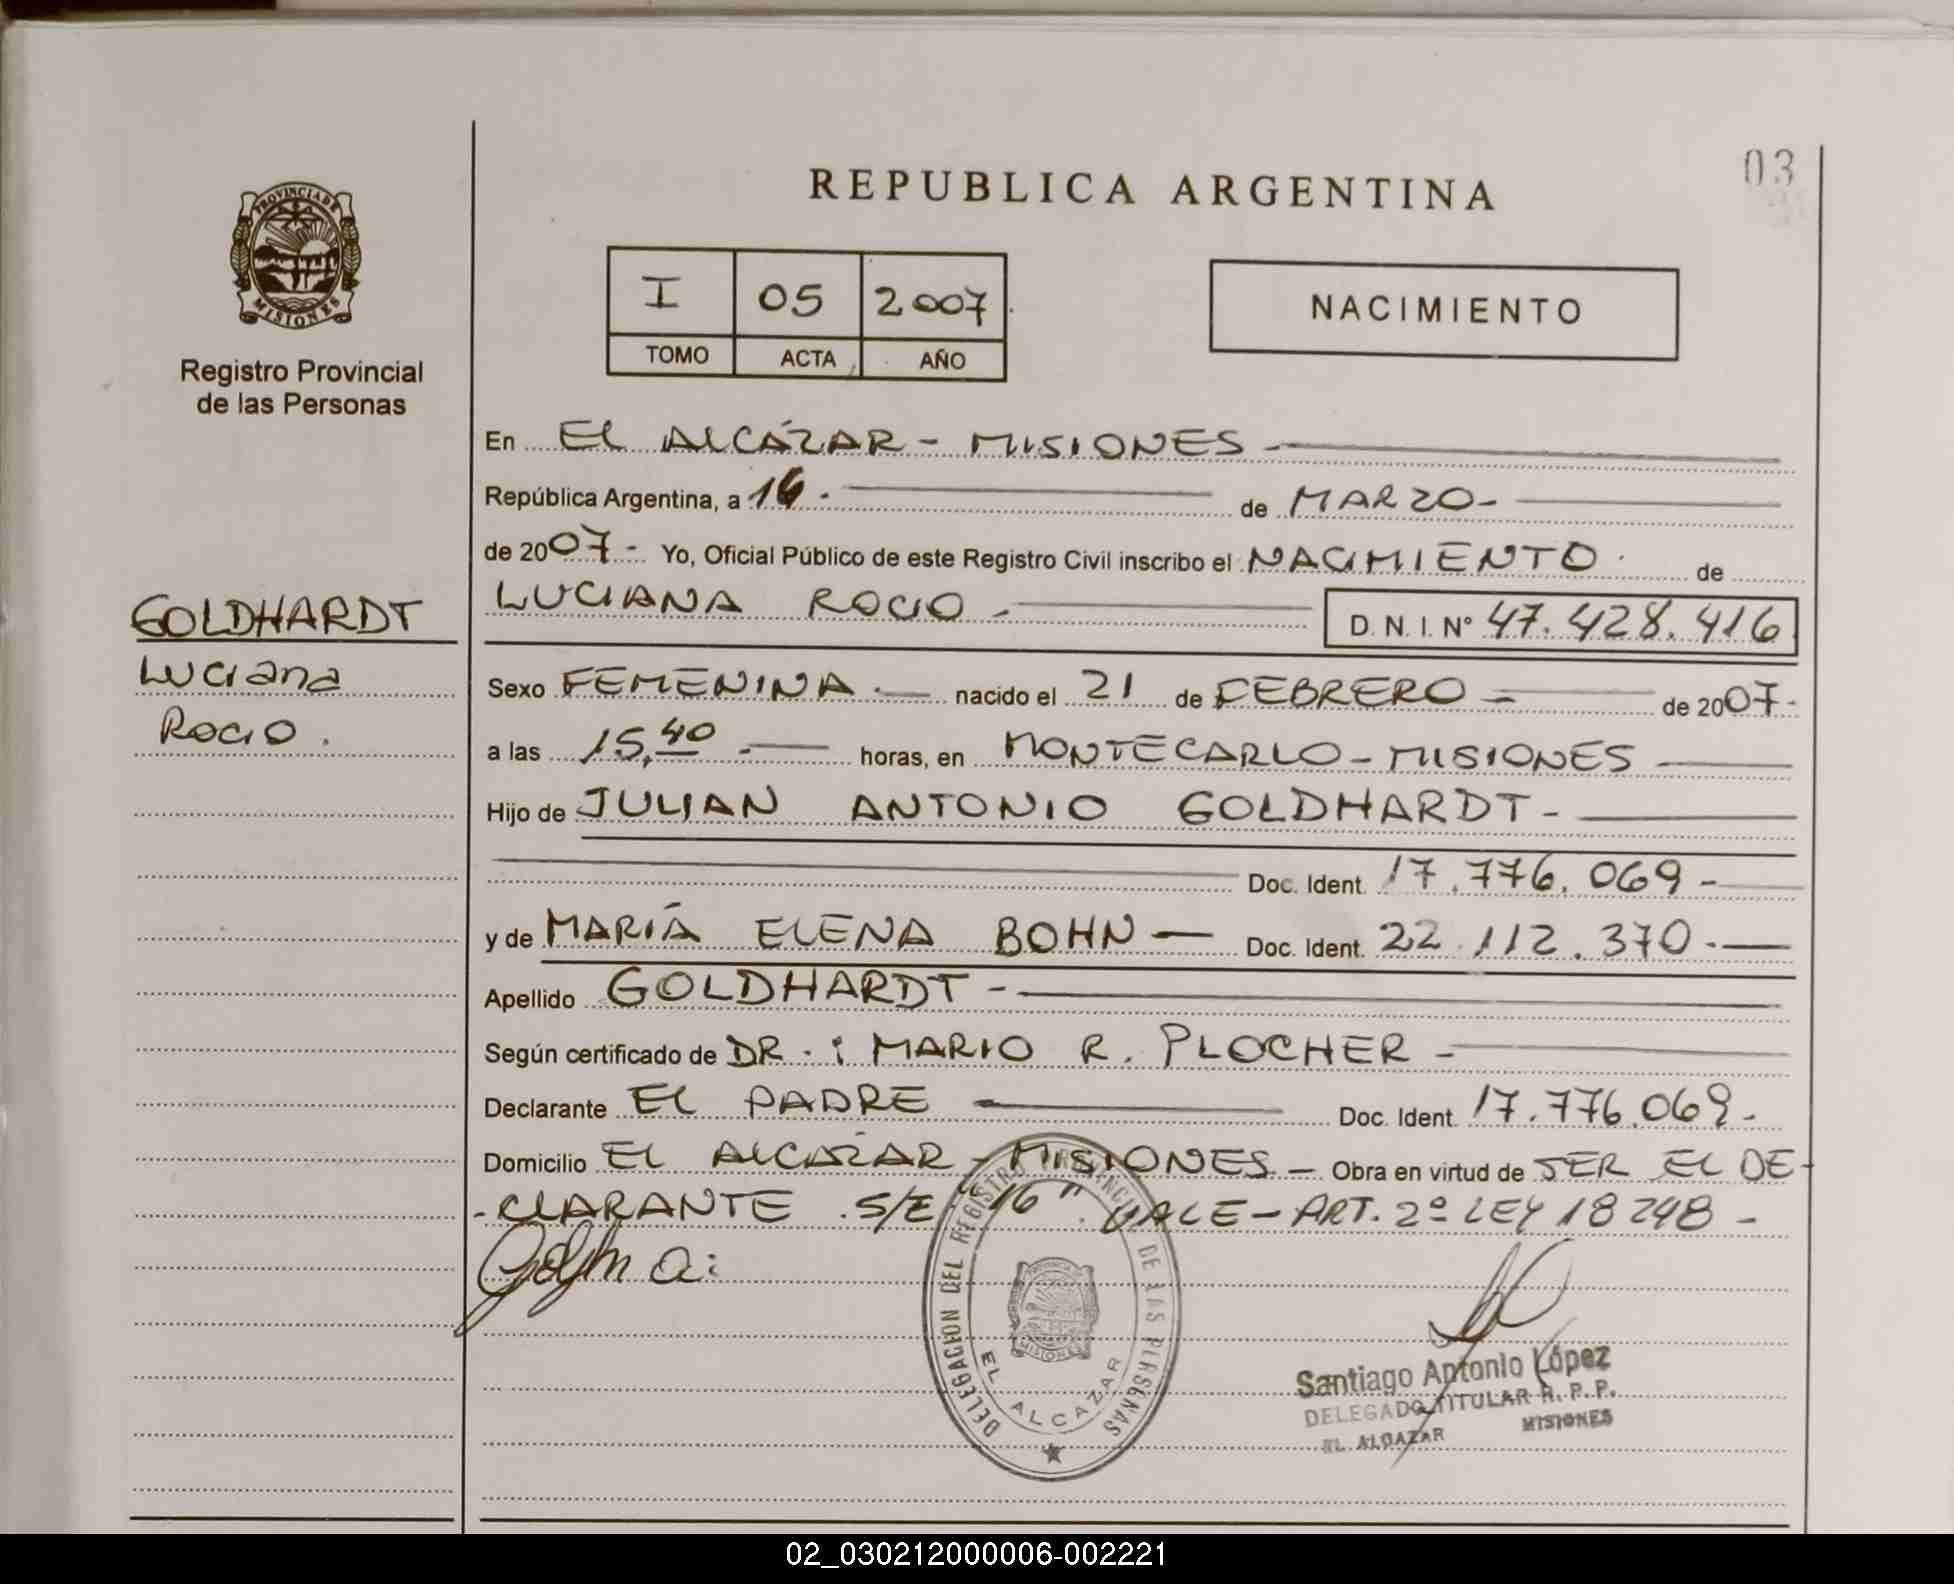 REPUBLICA ARGENTINA
03
PROVINCIA DE
MISIONES
Registro Provincial
de las Personas
I 05 2007
TOMO ACTA AÑO
NACIMIENTO
En EL ALCÁZAR - MISIONES
República Argentina, a 16. de MARZO-
de 2007- Yo, Oficial Público de este Registro Civil inscribo el NACIMIENTO de
LUCIANA ROCIO - D. N. I. Nº 47.428.416
GOLDHARDT
Luciana
Rocio.
Sexo FEMENINA.- nacido el 21 de FEBRERO - de 2007-
a las 15,40.- horas, en MONTECARLO - MISIONES
Hijo de JULIAN ANTONIO GOLDHARDT-
Doc. Ident. 17.776.069-
y de MARÍA ELENA BOHN - Doc. Ident. 22.112.370.-
Apellido GOLDHARDT -
Según certificado de DR.: MARIO R. PLOCHER -
Declarante EL PADRE Doc. Ident. 17.776.069-
Domicilio EL ALCÁZAR - MISIONES - Obra en virtud de SER EL DE-
-CLARANTE. S/E "16" VALE - ART. 2º LEY 18248 -
DELEGACION DEL REGISTRO PROVINCIAL DE LAS PERSONAS
MISIONES
EL ALCAZAR
Santiago Antonio López
DELEGADO TITULAR R. P. P.
EL ALCAZAR MISIONES
02_030212000006-002221